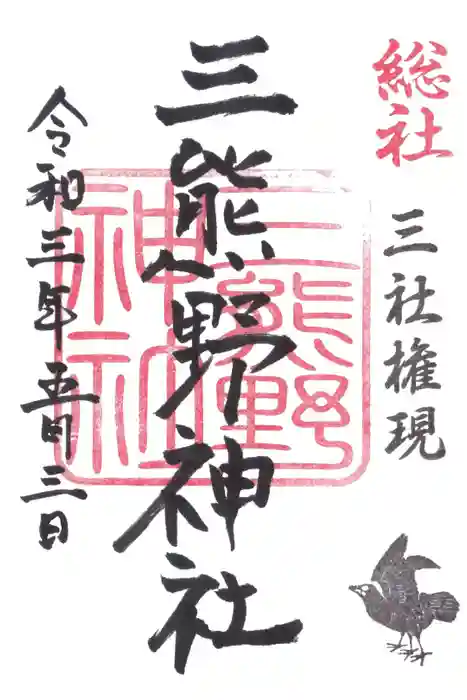 総社
三社権現
三熊野神社
三熊野
神社
令和三年五月三日